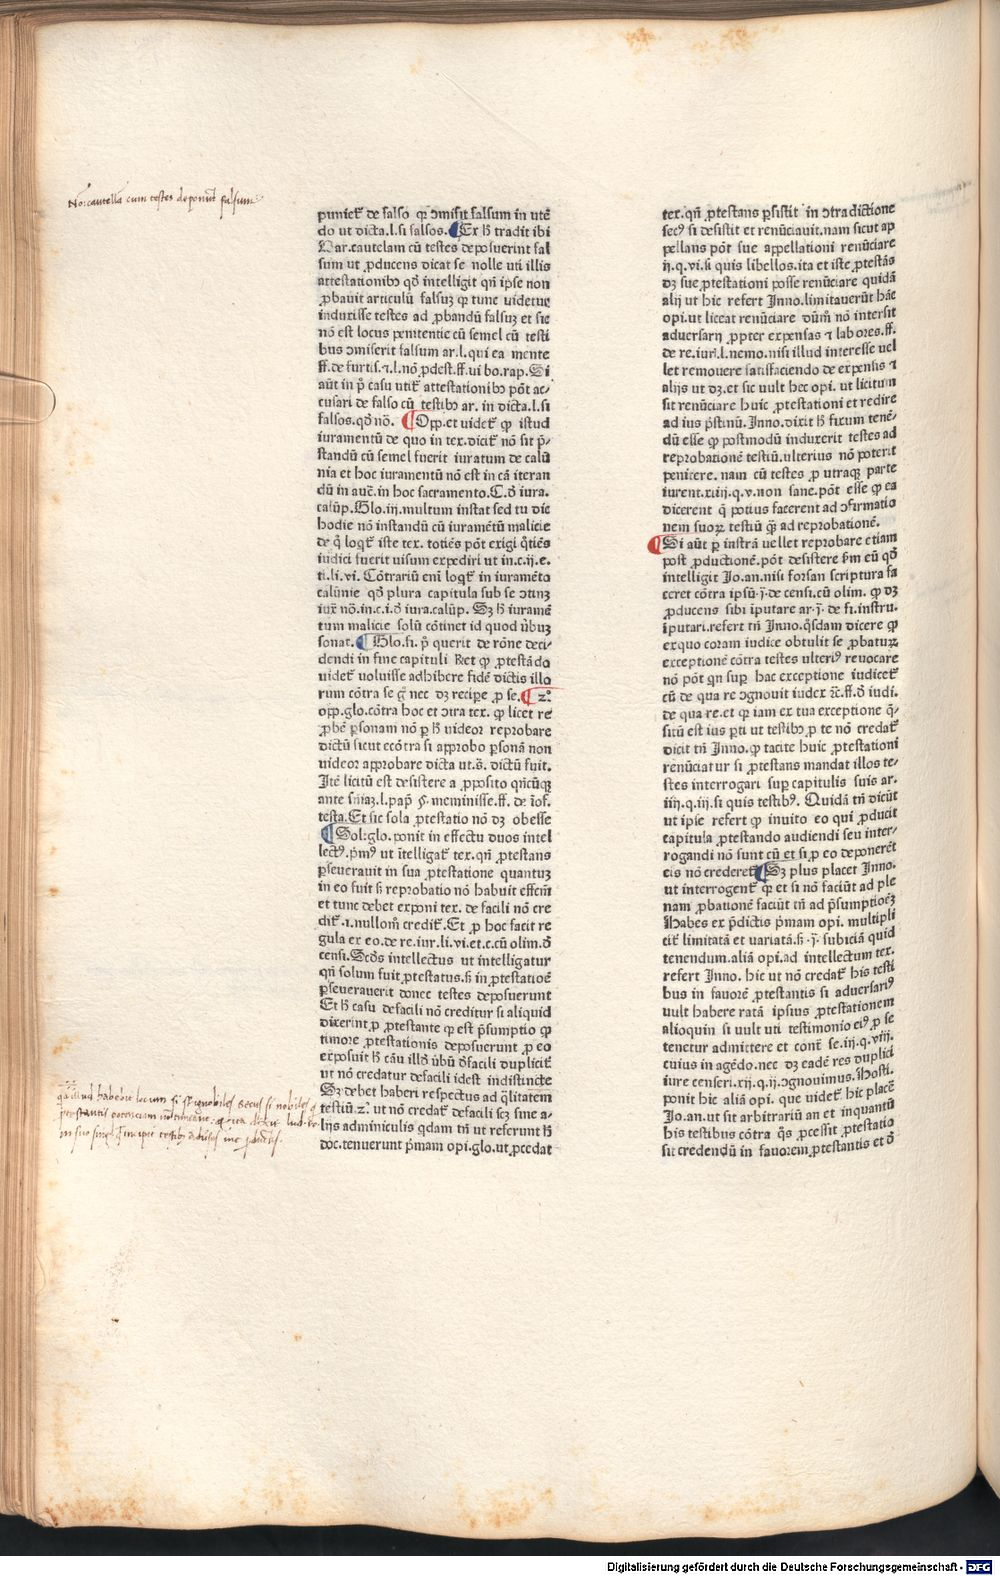 No: cautella cum testes deponũt falsum
puniet᷒ de falso qꝛ ↄmisit falsum in utẽ
do ut dicta.l.si falsos. ¶Ex h̃ tradit ibi
Bar.cautelam cũ testes deposuerint fal
sum ut ꝓducens dicat se nolle uti illis
attestationibꝰ qđ intelligit qñ ipse non
ꝓbauit articulũ falsuꝫ qꝛ tunc uidetur
induxisse testes ad ꝓbandũ falsuꝫ et sic
nõ est locus penitentie cũ semel cũ testi
bus ↄmiserit falsum ar.l.qui ea mente
ff.de furtis.⁊.l.nõ ꝓdest.ff.ui bo.rap.Si
aũt in p̃ casu utit᷒ attestationibꝰ põt ac⸗
cusari de falso cũ testibꝰ ar. in dicta.l.si
falsos.qđ nõ. ¶Opp.et uidet᷒ ꝙ istud
iuramentũ de quo in tex.dicit᷒ nõ sit p̃⸗
standũ cũ semel fuerit iuratum de calũ
nia et hoc iuramentũ nõ est in cã iteran
dũ in auc̃.in hoc sacramento.C.đ iura.
calũp.Glo.iij.multum instat sed tu dic
hodie nõ instandũ cũ iuramẽtũ malicie
de q̃ loqt᷒ iste tex. totiẽs põt exigi q̃tiẽs
iudici fuerit uisum expediri ut in.c.ij.e.
ti.li.vi. Cõtrariũ eni loqt᷒ in iuramẽto
calũnie qđ plura capitula sub se ↄtinꝫ
iux̃ nõ.in.c.i.đ iura.calũp. Sꝫ h̃ iuramẽ
tum malicie solũ cõtinet id quod ũbuꝫ
sonat. ¶Glo.fi. p̃ querit de rõne deci⸗
dendi in fine capituli Rt̃et ꝙ ꝓtestãdo
uidet᷒ uoluisse adhibere fidẽ dictis illo
rum cõtra se g̃ nec dꝫ recipe ꝓ se. ¶2º
opp.glo.cõtra hoc et ↄtra tex. ꝙ licet re
ꝓbẽ ꝑsonam nõ ꝑ h̃ uideor reprobare
dictũ sicut ecõtra si approbo ꝑsonã non
uideor approbare dicta ut.s̃. dictũ fuit.
Itẽ licitũ est desistere a ꝓposito qñcũqꝫ
ante sñiaꝫ.l.pap̃ §.meminisse.ff. de ĩof.
testa.Et sic sola ꝓtestatio nõ dꝫ obesse
¶Sol:glo.ponit in effectu duos intel
lectꝰ.p̃mꝰ ut ĩtelligat᷒ tex.qñ ꝓtestans
ꝑseuerauit in sua ꝓtestatione quantuꝫ
in eo fuit s̃ reprobatio nõ habuit effcm̃
et tunc debet exponi tex. de facili nõ cre
dit᷒.i.nullom̃ credit᷒.Et ꝓ hoc facit re
gula ex eo.de re.iur.li.vi.et.c.cũ olim.đ
censi.Scđs intellectus ut intelligatur
qñ solum fuit ꝓtestatus.s̃ in ꝓtestatioẽ
ꝑseuerauerit donec testes deposuerunt
Et h̃ casu defacili nõ creditur si aliquid
dixerint ꝓ ꝓtestante qꝛ est p̃sumptio ꝙ
timore ꝓtestationis deposuerunt ꝓ eo
exposuit h̃ cãu illđ ũbũ đfacili duplicit᷒
ut nõ credatur defacili idest indistincte
Sꝫ debet haberi respectus ad q̃litatem
testiũ.2.º ut nõ credat᷒ defacili scꝫ sine a⸗
lijs adminiculis qdam tñ ut referunt h̃
doc.tenuerunt p̃mam opi.glo.ut ꝓcedat
tex.qñ ꝓtestans ꝑsistit in ↄtradictione
secꝰ si desistit et renũciauit.nam sicut ap
pellans põt sue appellationi renũciare
ij.q.vi.si quis libellos.ita et iste ꝓtestãs
dꝫ sue ꝓtestationi posse renũciare quidã
alij ut hic refert Inno.limitauerũt hãc
opi.ut liceat renũciare dũm̃ nõ intersit
aduersarij ꝓpter expensas ⁊ labores.ff.
de re.iur.l.nemo.nisi illud interesse uel
let remouere satisfaciendo de expensis ⁊
alijs ut dꝫ.et sic uult hec opi. ut licitum
sit renũciare huic ꝓtestationi et redire
ad ius p̃stinũ. Inno.dixit h̃ fixum tenẽ⸗
dũ esse ꝙ postmodũ induxerit testes ad
reprobationẽ testiũ.ulterius nõ poterit
penitere. nam cũ testes ꝓ utraqꝫ parte
iurent.xiiij.q.v.non sane.põt esse ꝙ ea
dicerent q̃ potius facerent ad ↄfirmatio
nem suoꝝ testiũ q̃ꝫ ad reprobationẽ.
¶Si aũt ꝑ instrã uellet reprobare etiam
post ꝓductionẽ.põt desistere fm eũ qđ
intelligit Jo.an.nisi forsan scriptura fa
ceret cõtra ipsũ.j̃.de censi.cũ olim. ꝙ dꝫ
ꝓducens sibi ĩputare ar.j̃. de fi.instru.
ĩputari.refert tñ Inno.q̃sdam dicere ꝙ
exquo coram iudice obtulit se ꝓbaturꝫ
exceptionẽ cõtra testes ulteriꝰ reuocare
nõ põt qñ suꝑ hac exceptione iudicet᷒
cũ de qua re ↄgnouit iudex ĩc̃.ff.đ iudi.
de qua re.et ꝙ iam ex tua exceptione q̃⸗
sitũ est ius ꝑti ut testibꝰ ꝓ te nõ credat᷒
dicit tñ Inno.ꝙ tacite huic ꝓtestationi
renũciatur si ꝓtestans mandat illos te⸗
stes interrogari suꝑ capitulis suis ar.
iiij.q.iij.si quis testibꝰ. Quidã tñ dicũt
ut ipse refert ꝙ inuito eo qui ꝓducit
capitula ꝓtestando audiendi seu inter⸗
rogandi nõ sunt cũ et si ꝓ eo deponerẽt
eis nõ crederet᷒ ¶Sꝫ plus placet Inno.
ut interrogent᷒ qꝛ et si nõ faciũt ad ple
nam ꝓbationẽ faciũt tñ ad p̃sumptioẽꝫ
Habes ex p̃dictis p̃mam opi. multipli
cit᷒ limitatã et uariatã.s̃.j̃.subiciã quid
tenendum.aliã opi.ad intellectum tex.
refert Inno. hic ut nõ credat᷒ his testi
bus in fauorẽ ꝓtestantis si aduersariꝰ
uult habere ratã ipsius ꝓtestationem
alioquin si uult uti testimonio eiꝰ ꝓ se
tenetur admittere et cont᷒ se.iij.q.viij.
cuius in agẽdo.nec dꝫ eadẽ res duplici
iure censeri.xij.q.ij.ↄgnouimus.Hosti.
ponit hic aliã opi. que uidet᷒ hic placẽ
Jo.an.ut sit arbitrariũ an et inquantũ
his testibus cõtra q̃s ꝓcessit ꝓtestatio
sit credendũ in fauorem ꝓtestantis et đ